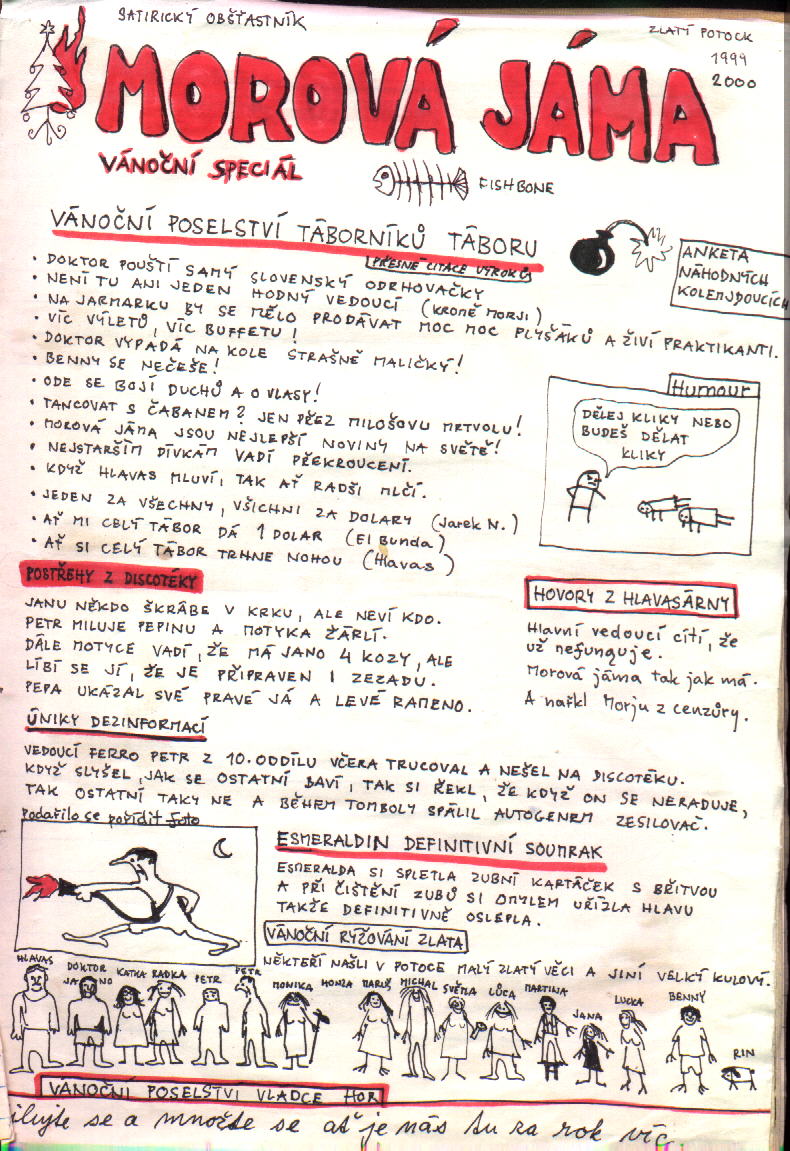 SATIRICKÝ OBŠŤASTNÍK
ZLATÍ POTOCK
1999
2000
MOROVÁ JÁMA
VÁNOČNÍ SPECIÁL
FISHBONE
VÁNOČNÍ POSELSTVÍ TÁBORNÍKŮ TÁBORU
PŘESNÉ CITACE VÝROKŮ
ANKETA
NÁHODNÝCH
KOLEMJDOUCÍCH
• DOKTOR POUŠTÍ SAMÝ SLOVENSKÝ ODRHOVAČKY
• NENÍ TU ANI JEDEN HODNÝ VEDOUCÍ (KROMĚ MORJI)
• NA JARMARKU BY SE MĚLO PRODÁVAT MOC MOC PLYŠÁKŮ A ŽIVÍ PRAKTIKANTI.
• VÍC VÝLETŮ, VÍC BUFFETU!
• DOKTOR VYPADÁ NA KOLE STRAŠNĚ MALIČKÝ!
• BENNY SE NEČEŠE!
• ODE SE BOJÍ DUCHŮ A O VLASY!
• TANCOVAT S ČABANEM? JEN PŘEZ MILOŠOVU MRTVOLU!
• MOROVÁ JÁMA JSOU NEJLEPŠÍ NOVINY NA SVĚTĚ!
• NEJSTARŠÍM DÍVKÁM VADÍ PŘEKROUCENÍ.
• KDYŽ HLAVAS MLUVÍ, TAK AŤ RADŠI MLČÍ.
• JEDEN ZA VŠECHNY, VŠICHNI ZA DOLARY (Jarek N.)
• AŤ MI CELÝ TÁBOR DÁ 1 DOLAR (El Bunda)
• AŤ SI CELÝ TÁBOR TRHNE NOHOU (Hlavas)
Humour
DĚLEJ KLIKY NEBO
BUDEŠ DĚLAT
KLIKY
POSTŘEHY Z DISCOTÉKY
JANU NĚKDO ŠKRÁBE V KRKU, ALE NEVÍ KDO.
PETR MILUJE PEPINU A MOTYKA ŽÁRLÍ.
DÁLE MOTYCE VADÍ, ŽE MÁ JANO 4 KOZY, ALE
LÍBÍ SE JÍ, ŽE JE PŘIPRAVEN I ZEZADU.
PEPA UKÁZAL SVÉ PRAVÉ JÁ A LEVÉ RAMENO.
HOVORY Z HLAVASÁRNY
Hlavní vedoucí cítí, že
už nefunguje.
Morová jáma tak jak má.
A nařkl Morju z cenzúry.
ÚNIKY DEZINFORMACÍ
VEDOUCÍ FERRO PETR Z 10. ODDÍLU VČERA TRUCOVAL A NEŠEL NA DISCOTÉKU.
KDYŽ SLYŠEL, JAK SE OSTATNÍ BAVÍ, TAK SI ŘEKL, ŽE KDYŽ ON SE NERADUJE,
TAK OSTATNÍ TAKY NE A BĚHEM TOMBOLY SPÁLIL AUTOGENEM ZESILOVAČ.
Podařilo se pořídit foto
ESMERALDIN DEFINITIVNÍ SOUMRAK
ESMERALDA SI SPLETLA ZUBNÍ KARTÁČEK S BŘITVOU
A PŘI ČIŠTĚNÍ ZUBŮ SI OMYLEM UŘÍZLA HLAVU
TAKŽE DEFINITIVNĚ OSLEPLA.
VÁNOČNÍ RÝŽOVÁNÍ ZLATA
NĚKTEŘÍ NAŠLI V POTOCE MALÝ ZLATÝ VĚCI A JINÍ VELKÝ KULOVÝ.
HLAVAS DOKTOR JANO KATKA RADKA PETR PETR MONIKA HONZA MARUŠ MICHAL SVĚŤA LŮCA MARTINA JANA LUCKA BENNY RIN
VÁNOČNÍ POSELSTVÍ VLÁDCE HOR
se a množte se ať je nás tu za rok víc